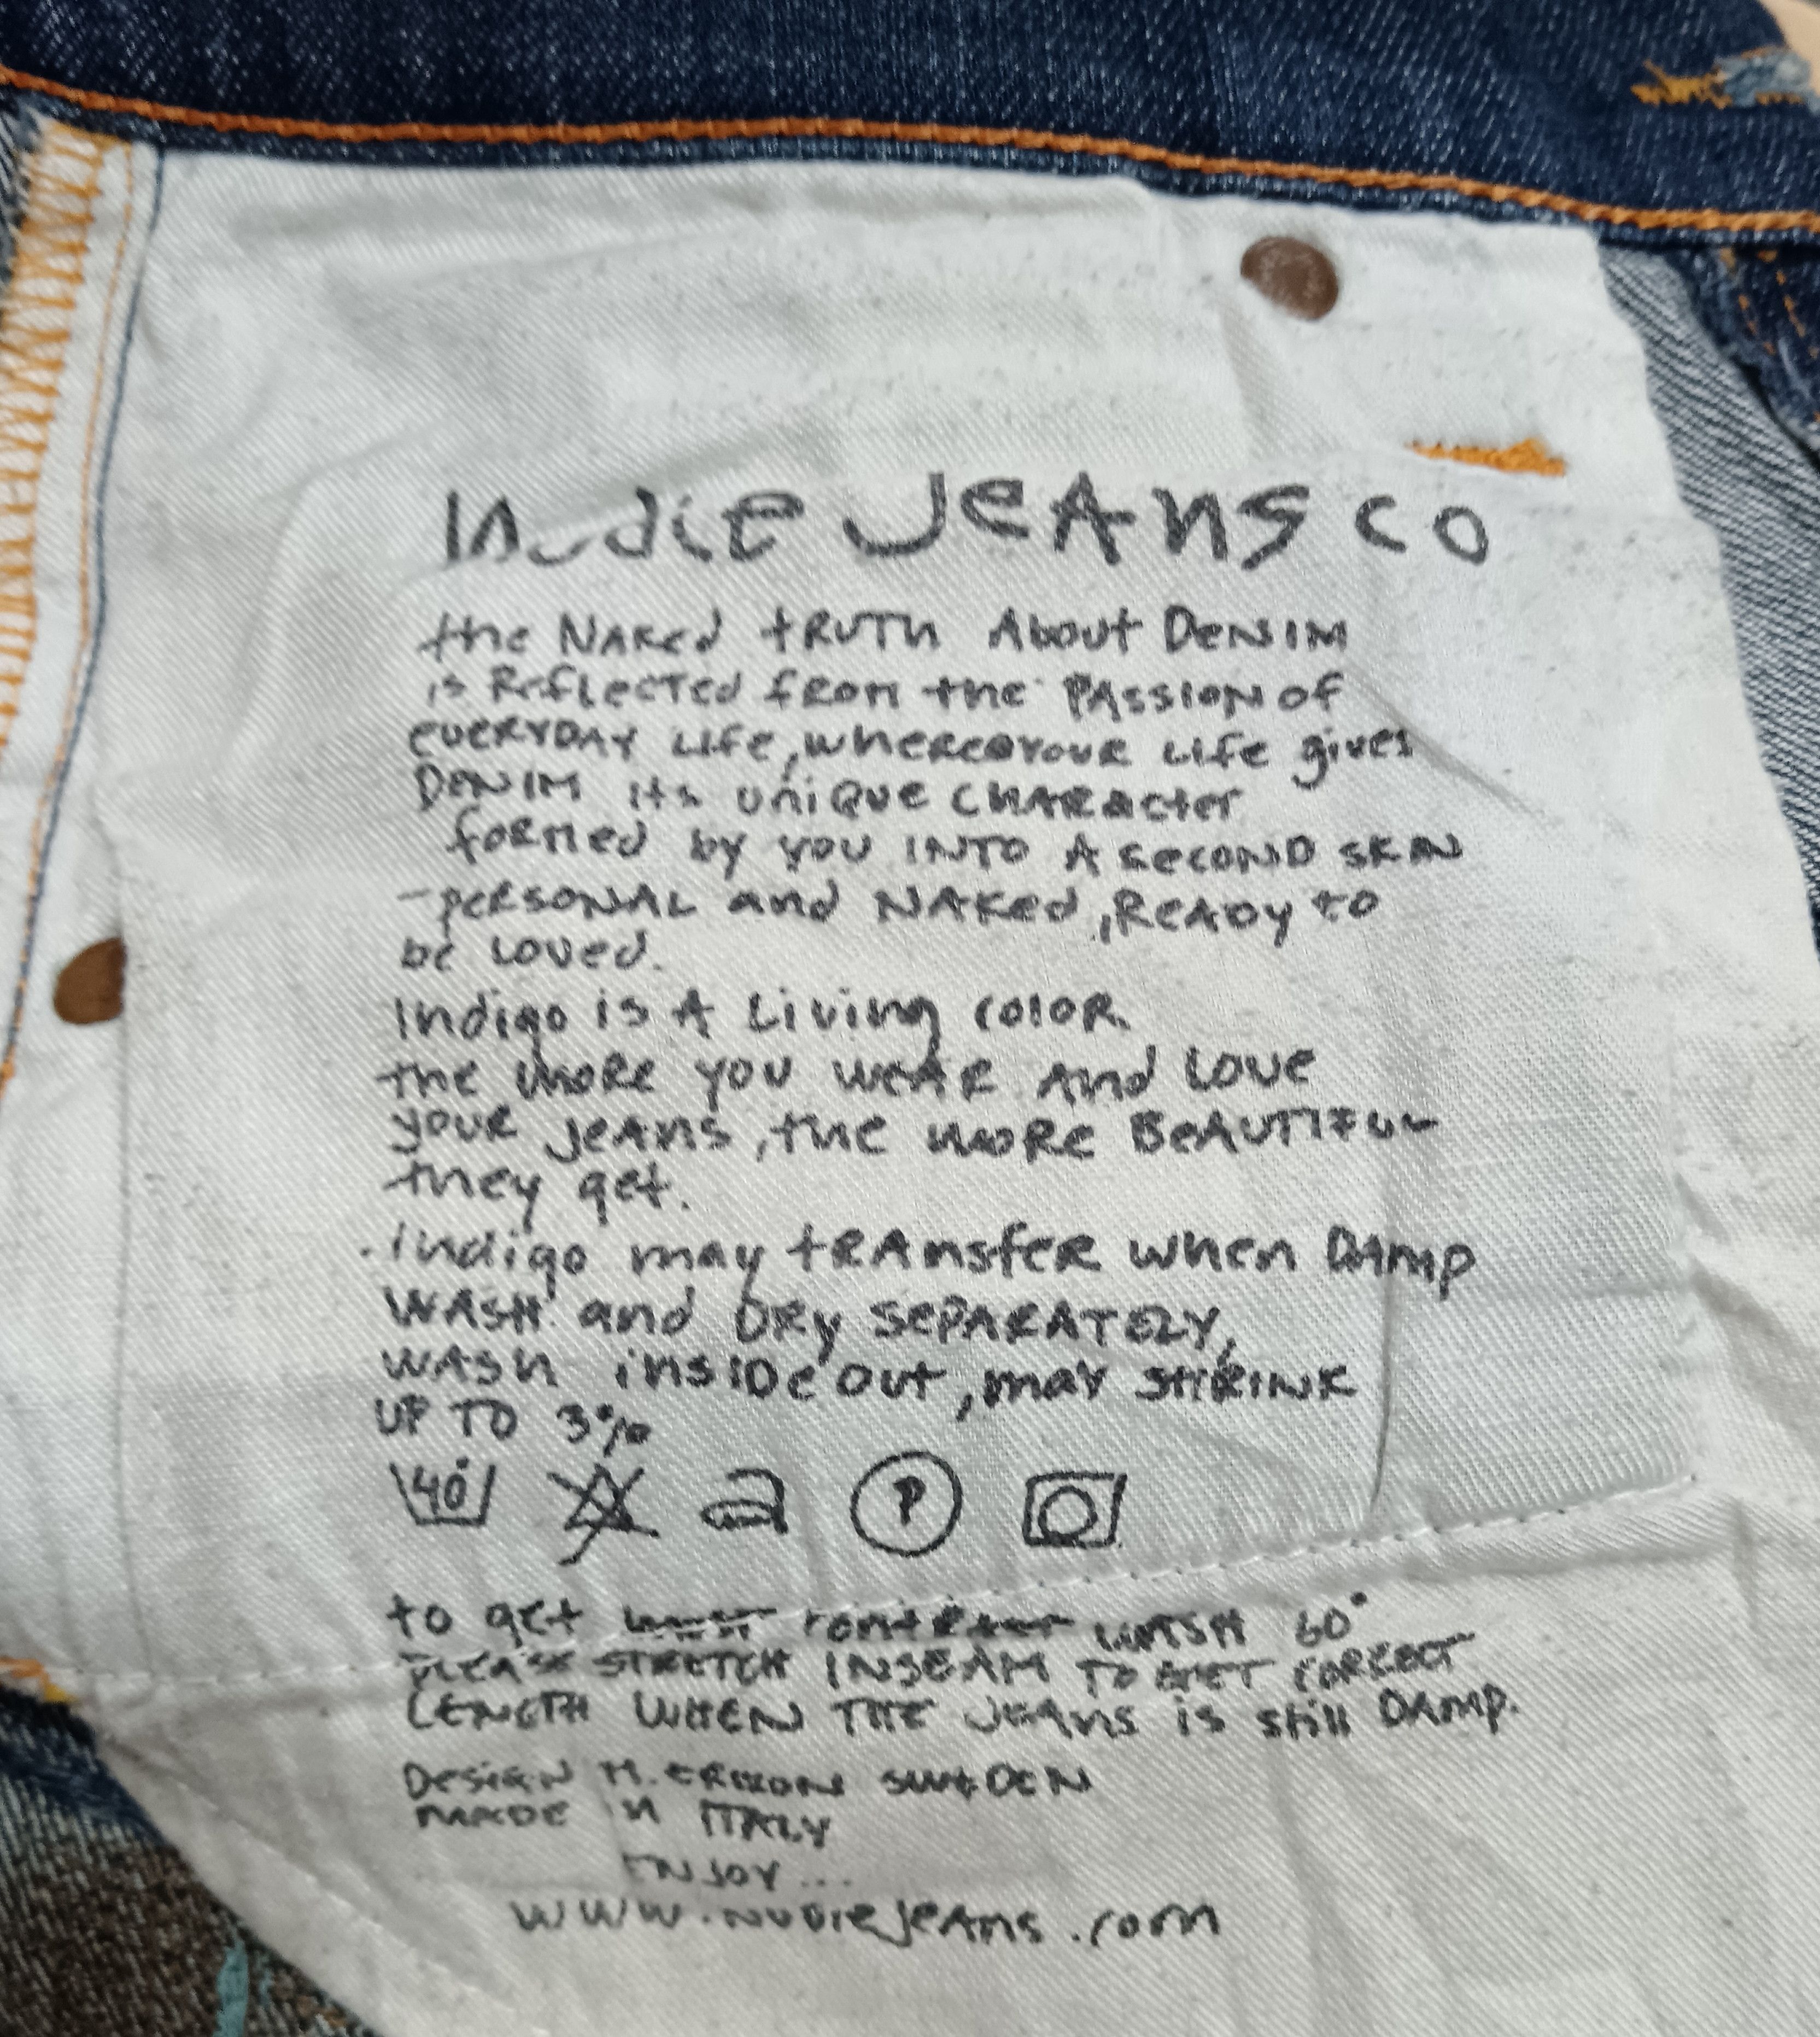 Nudie Jeans co
the Naked truth About Denim
is Reflected from the Passion of
everyday life, where your life gives
Denim its unique character
formed by you INTO A second skin
- personal and Naked, Ready to
be loved.
Indigo is A Living color.
the more you wear And love
your jeans, the more Beautiful
they get.
.Indigo may transfer when Damp
WASH and Dry separately,
WASH inside out, may shrink
UP TO 3%
40°
P
to get best contrast WASH 60°
PLEASE STRETCH INSEAM TO GET CORRECT
LENGTH WHEN THE Jeans is still Damp.
Design M. Erixon Sweden
made in ITALY
ENJOY...
www.nudiejeans.com